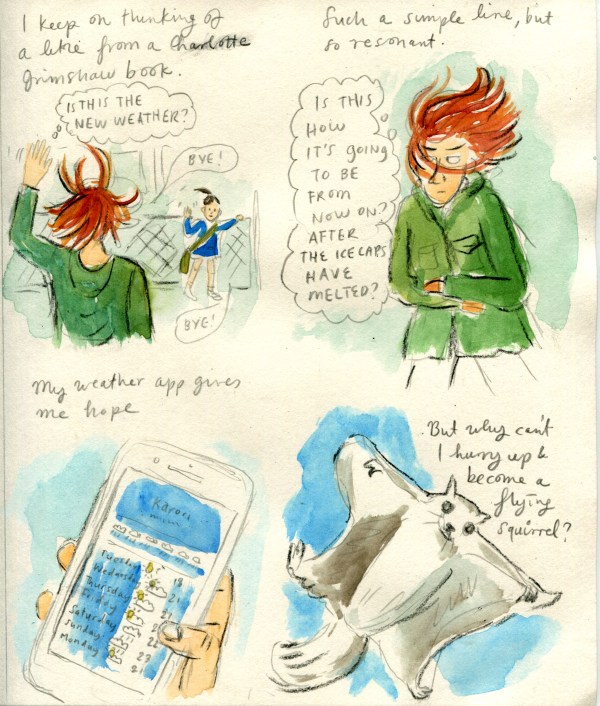 I keep on thinking of
a line from a Charlotte
Grimshaw book.
IS THIS THE
NEW WEATHER?
BYE!
BYE!
Such a simple line, but
so resonant.
IS THIS
HOW
IT'S GOING
TO BE
FROM
NOW ON?
AFTER
THE ICECAPS
HAVE
MELTED?
My weather app gives
me hope
Karori
Tuesday 18
Wednesday
Thursday
Friday
Saturday
Sunday 23
Monday 21
But why can't
I hurry up &
become a
flying
squirrel?